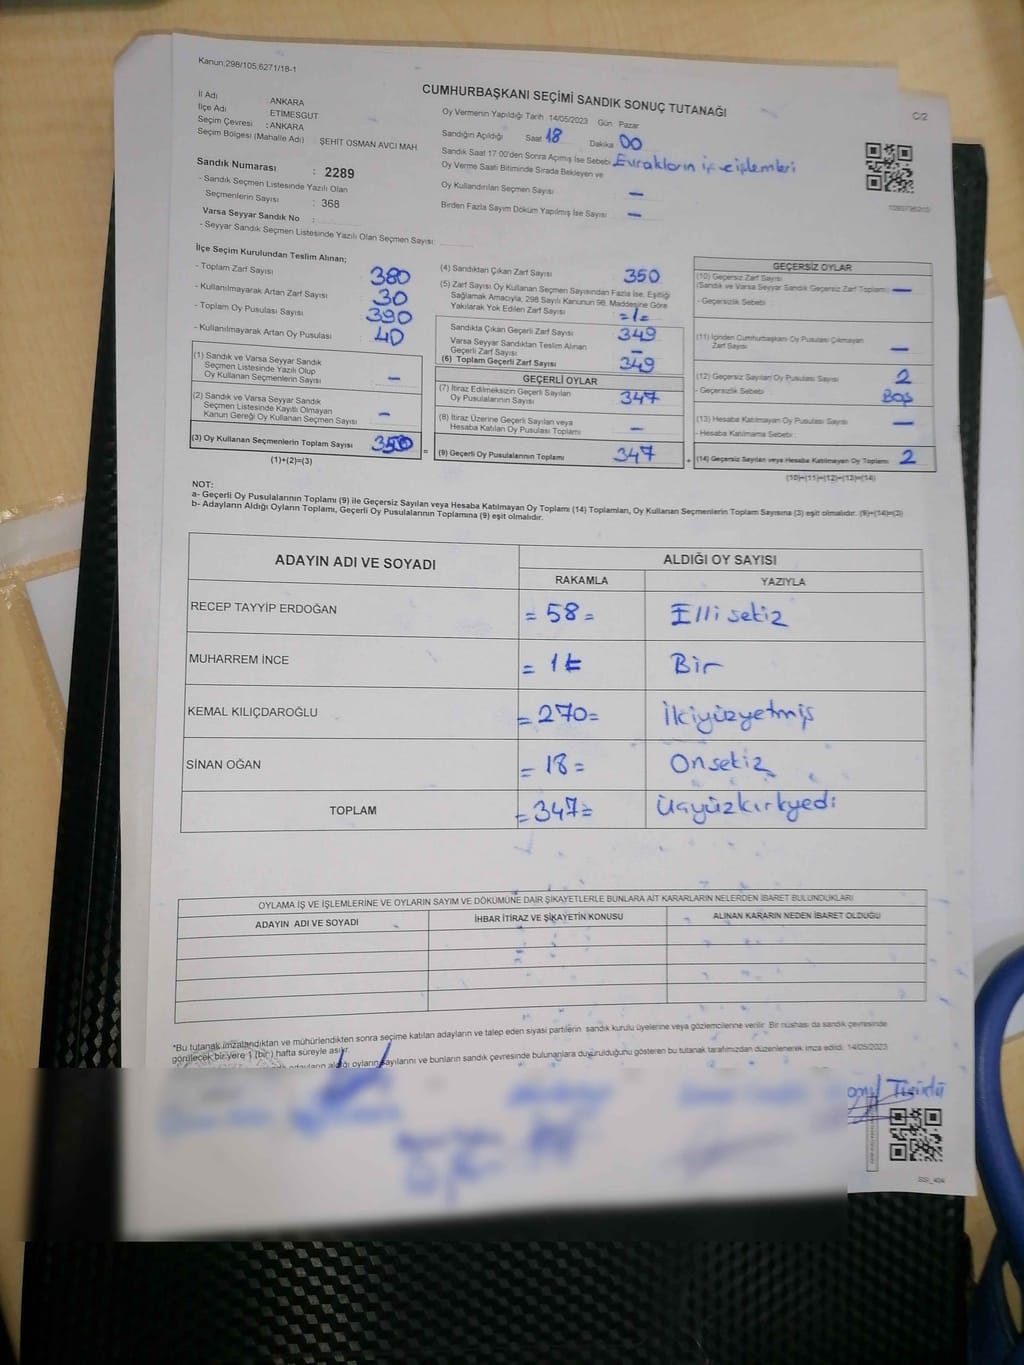 Kanun:298/105,6271/18-1
CUMHURBAŞKANI SEÇİMİ SANDIK SONUÇ TUTANAĞI
C/2
İl Adı ANKARA
İlçe Adı ETİMESGUT
Seçim Çevresi : ANKARA
Seçim Bölgesi (Mahalle Adı) ŞEHİT OSMAN AVCI MAH.
Sandık Numarası : 2289
- Sandık Seçmen Listesinde Yazılı Olan
Seçmenlerin Sayısı : 368
Varsa Seyyar Sandık No :
- Seyyar Sandık Seçmen Listesinde Yazılı Olan Seçmen Sayısı:
Oy Vermenin Yapıldığı Tarih 14/05/2023 Gün Pazar
Sandığın Açıldığı Saat 18 Dakika 00
Sandık Saat 17:00'den Sonra Açılmış İse Sebebi Evrakların işlemleri
Oy Verme Saati Bitiminde Sırada Bekleyen ve
Oy Kullandırılan Seçmen Sayısı —
Birden Fazla Sayım Döküm Yapılmış İse Sayısı —
İlçe Seçim Kurulundan Teslim Alınan;
- Toplam Zarf Sayısı 380
- Kullanılmayarak Artan Zarf Sayısı 30
- Toplam Oy Pusulası Sayısı 390
- Kullanılmayarak Artan Oy Pusulası 40
(1) Sandık ve Varsa Seyyar Sandık
Seçmen Listesinde Yazılı Olup
Oy Kullanan Seçmenlerin Sayısı —
(2) Sandık ve Varsa Seyyar Sandık
Seçmen Listesinde Kayıtlı Olmayan
Kanun Gereği Oy Kullanan Seçmen Sayısı —
(3) Oy Kullanan Seçmenlerin Toplam Sayısı 350 =
(1)+(2)=(3)
(4) Sandıktan Çıkan Zarf Sayısı 350
(5) Zarf Sayısı Oy Kullanan Seçmen Sayısından Fazla İse, Eşitliği
Sağlamak Amacıyla, 298 Sayılı Kanunun 98. Maddesine Göre
Yakılarak Yok Edilen Zarf Sayısı =1=
Sandıkta Çıkan Geçerli Zarf Sayısı 349
Varsa Seyyar Sandıktan Teslim Alınan
Geçerli Zarf Sayısı —
(6) Toplam Geçerli Zarf Sayısı 349
GEÇERLİ OYLAR
(7) İtiraz Edilmeksizin Geçerli Sayılan
Oy Pusulalarının Sayısı 347
(8) İtiraz Üzerine Geçerli Sayılan veya
Hesaba Katılan Oy Pusulası Toplamı —
(9) Geçerli Oy Pusulalarının Toplamı 347 +
GEÇERSİZ OYLAR
(10) Geçersiz Zarf Sayısı
(Sandık ve Varsa Seyyar Sandık Geçersiz Zarf Toplamı) —
- Geçersizlik Sebebi :
(11) İçinden Cumhurbaşkanı Oy Pusulası Çıkmayan
Zarf Sayısı —
(12) Geçersiz Sayılan Oy Pusulası Sayısı 2
- Geçersizlik Sebebi : Boş
(13) Hesaba Katılmayan Oy Pusulası Sayısı —
- Hesaba Katılmama Sebebi :
(14) Geçersiz Sayılan veya Hesaba Katılmayan Oy Toplamı 2
(10)+(11)+(12)+(13)=(14)
NOT:
a- Geçerli Oy Pusulalarının Toplamı (9) ile Geçersiz Sayılan veya Hesaba Katılmayan Oy Toplamı (14) Toplamları, Oy Kullanan Seçmenlerin Toplam Sayısına (3) eşit olmalıdır. (9)+(14)=(3)
b- Adayların Aldığı Oyların Toplamı, Geçerli Oy Pusulalarının Toplamına (9) eşit olmalıdır.
ADAYIN ADI VE SOYADI ALDIĞI OY SAYISI
RAKAMLA YAZIYLA
RECEP TAYYİP ERDOĞAN = 58 = Elli sekiz
MUHARREM İNCE = 1 = Bir
KEMAL KILIÇDAROĞLU = 270 = İkiyüzyetmiş
SİNAN OĞAN = 18 = Onsekiz
TOPLAM = 347 = Üçyüzkırkyedi
OYLAMA İŞ VE İŞLEMLERİNE VE OYLARIN SAYIM VE DÖKÜMÜNE DAİR ŞİKAYETLERLE BUNLARA AİT KARARLARIN NELERDEN İBARET BULUNDUKLARI
ADAYIN ADI VE SOYADI İHBAR İTİRAZ VE ŞİKAYETİN KONUSU ALINAN KARARIN NEDEN İBARET OLDUĞU
*Bu tutanak imzalandıktan ve mühürlendikten sonra seçime katılan adayların ve talep eden siyasi partilerin sandık kurulu üyelerine veya gözlemcilerine verilir. Bir nüshası da sandık çevresinde
görülecek bir yere 1 (bir) hafta süreyle asılır.
adayların aldığı oyların sayılarını ve bunların sandık çevresinde bulunanlara duyurulduğunu gösteren bu tutanak tarafımızdan düzenlenerek imza edildi. 14/05/2023